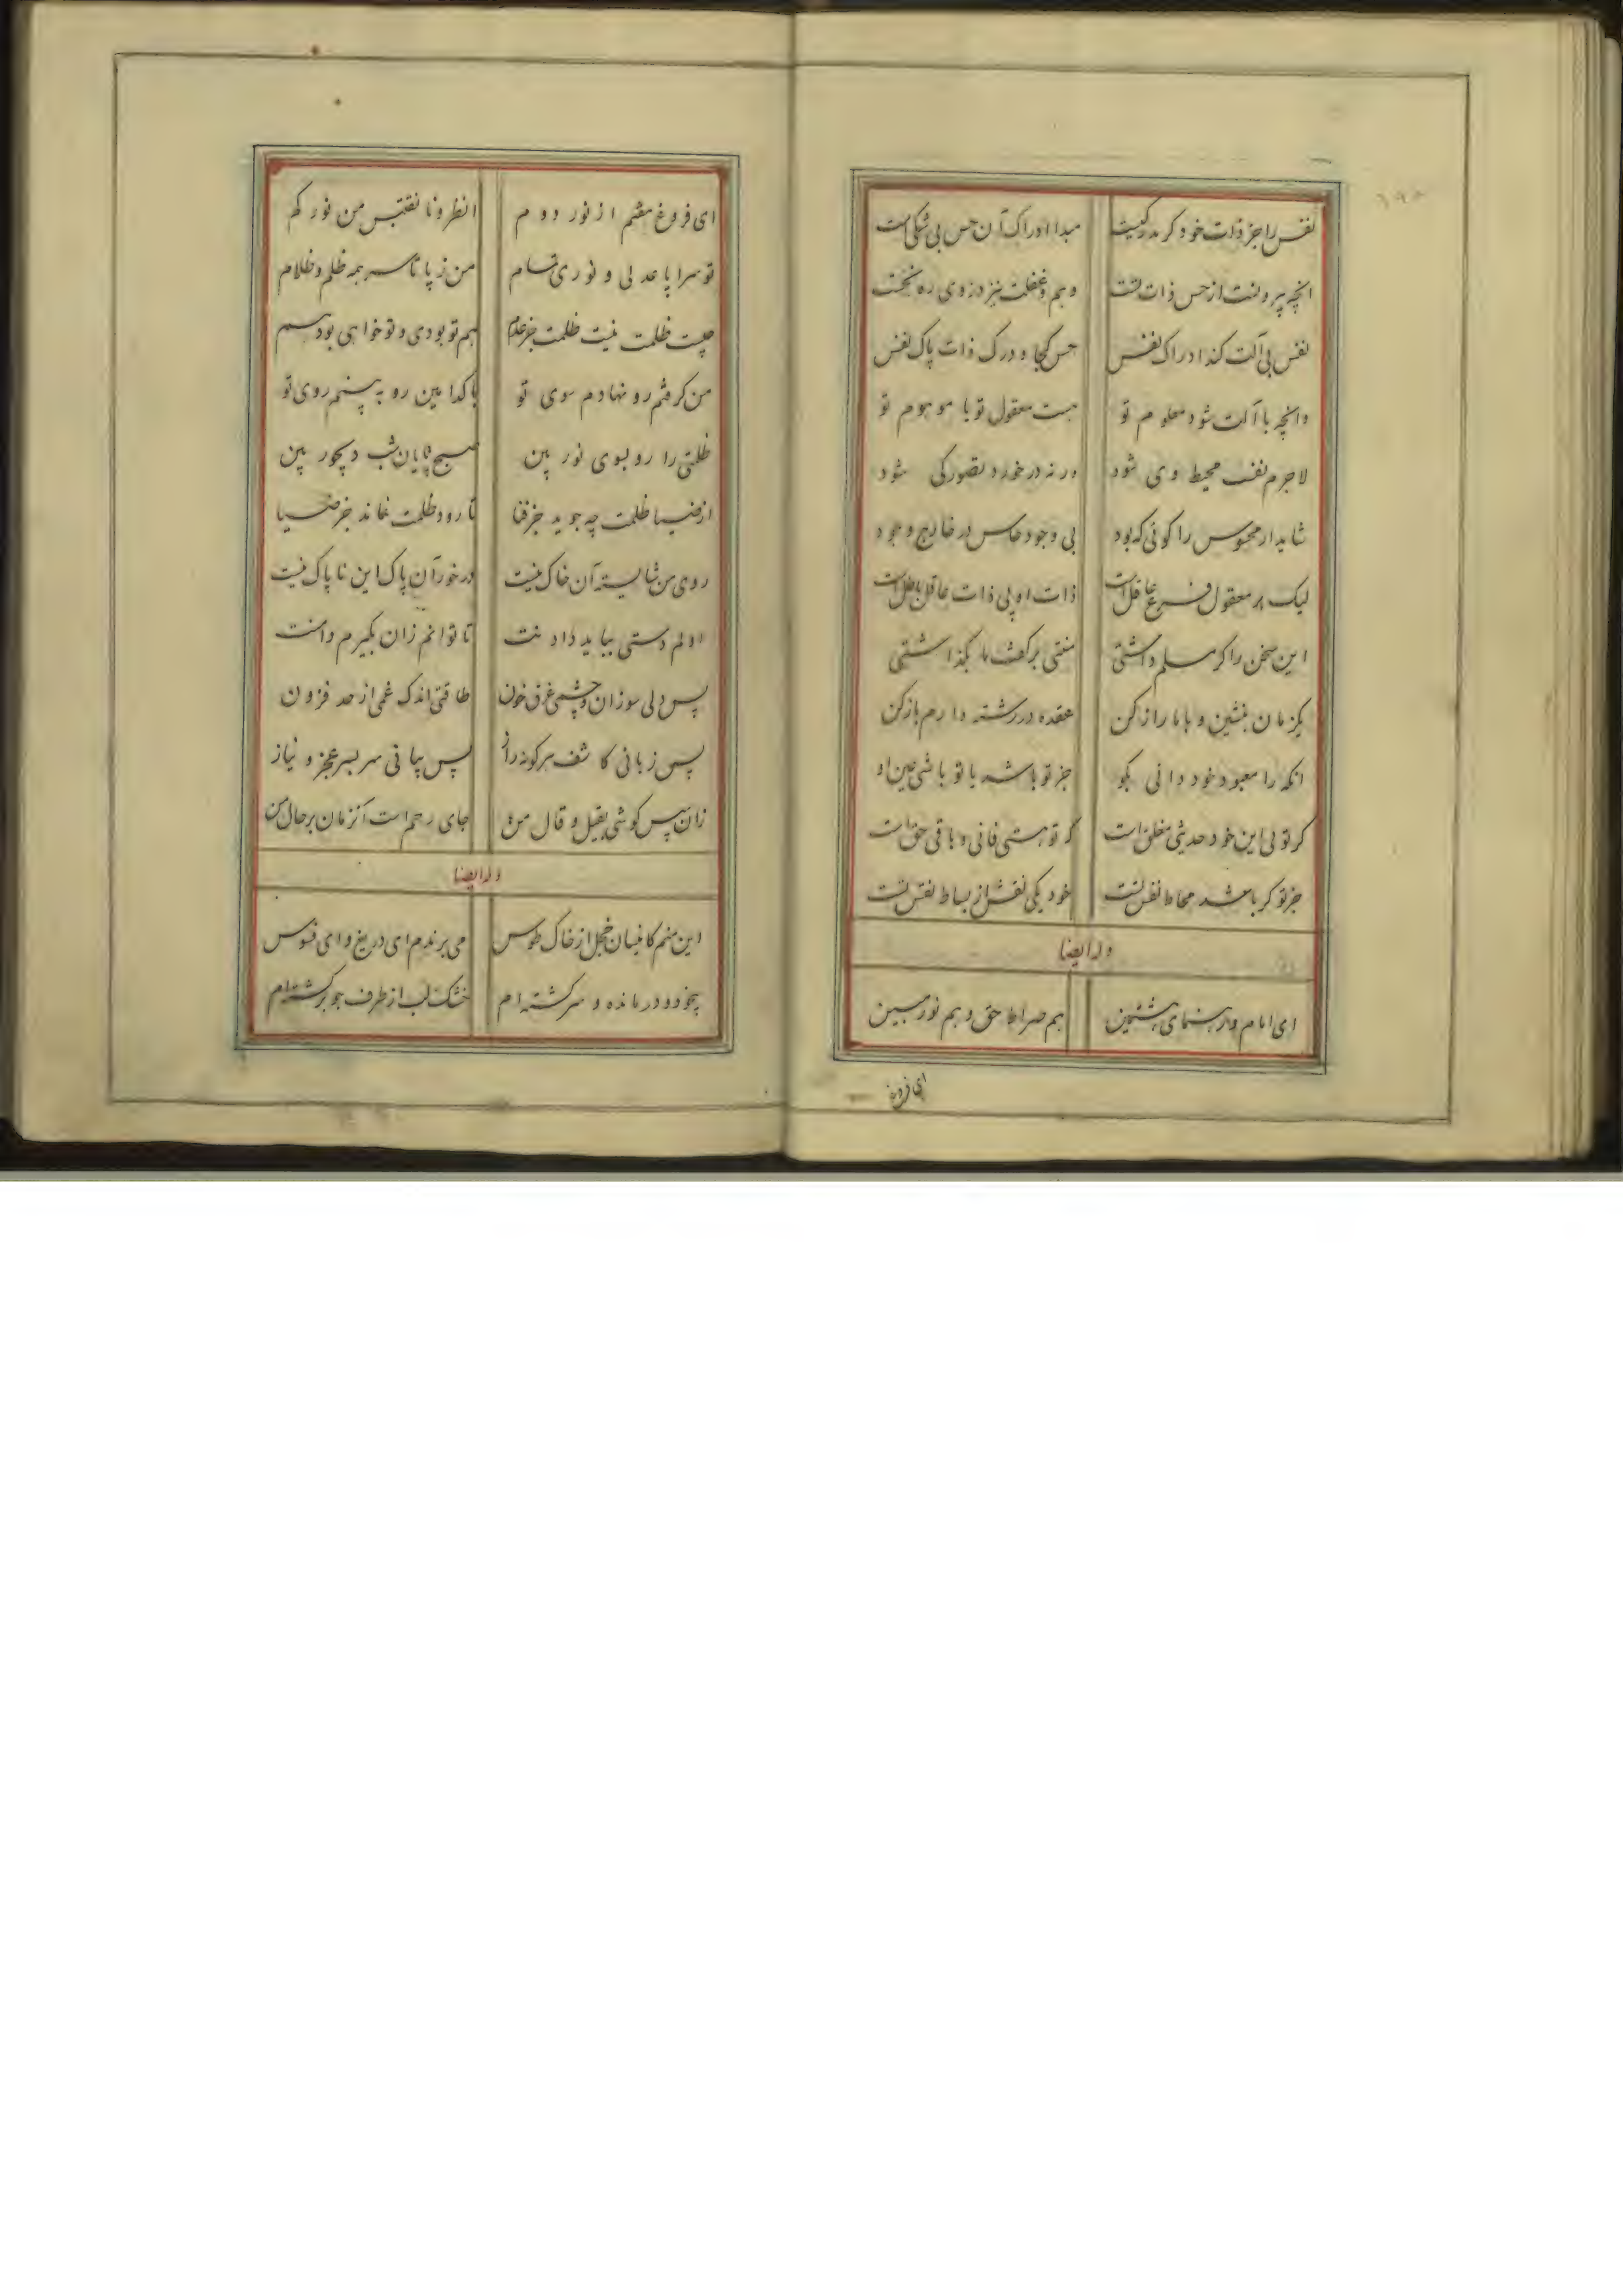 نفس را جز ذات خود گر مدرکیست مبدا ادراک آن حس بی شکیست
انچه بیرونست از حس ذات تست وهم و غفلت نیز در وی ره نجست
نفس بی آلت کند ادراک نفس حس کجا و درک ذات پاک نفس
وانچه با آلت شود معلوم تو هست معقول تو یا موهوم تو
لاجرم نفست محیط وی شود ورنه در خورد تصور کی شود
شاید ار محسوس را گوئی که بود بی وجود حاس در خارج وجود
لیک بر معقول فرع عاقل است ذات او بی ذات عاقل باطل است
این سخن را گر مسلم داشتی منتی بر گفت ما بگذاشتی
یکزمان بنشین و با ما راز کن عقده در رشته دارم باز کن
انکه را معبود خود دانی بگو جز تو باشد یا تو باشی عین او
گر توئی این خود حدیثی مغلق است که تو هستی فانی و باقی حق است
جز تو گر باشد محاط نفس تست خود یکی نقش از بساط نفس تست
وله ایضا
ای امام و رهنمای هشتمین هم صراط حق و هم نور مبین
ای فروغ
ای فروغ هفتم از نور دوم انظرونا نقتبس من نورکم
تو سراپا عدلی و نوری تمام من ز پا تا سر همه ظلم و ظلام
چیست ظلمت نیست ظلمت جز عدم هم تو بودی و تو خواهی بود هم
من گرفتم رو نهادم سوی تو با کدامین رو به بینم روی تو
ظلمتی را رو بسوی نور بین صبح پایان شب دیجور بین
از ضیا ظلمت چه جوید جز فنا تا رود ظلمت نماند جز ضیا
روی من شایسته آن خاک نیست در خور آن پاک این ناپاک نیست
اولم دستی بباید دادنت تا توانم زان بگیرم دامنت
پس دلی سوزان و چشمی غرق خون طاقتی اندک غمی از حد فزون
پس زبانی کاشف هر گونه راز پس بیانی سر بسر عجز و نیاز
زان سپس گوشی بقیل و قال من جای رحم است آنزمان بر حال من
وله ایضا
این منم کانیسان خجل از خاک طوس می برندم ای دریغ و ای فسوس
بیخود و درمانده و سرگشته ام خشک لب از طرف جو برگشته ام